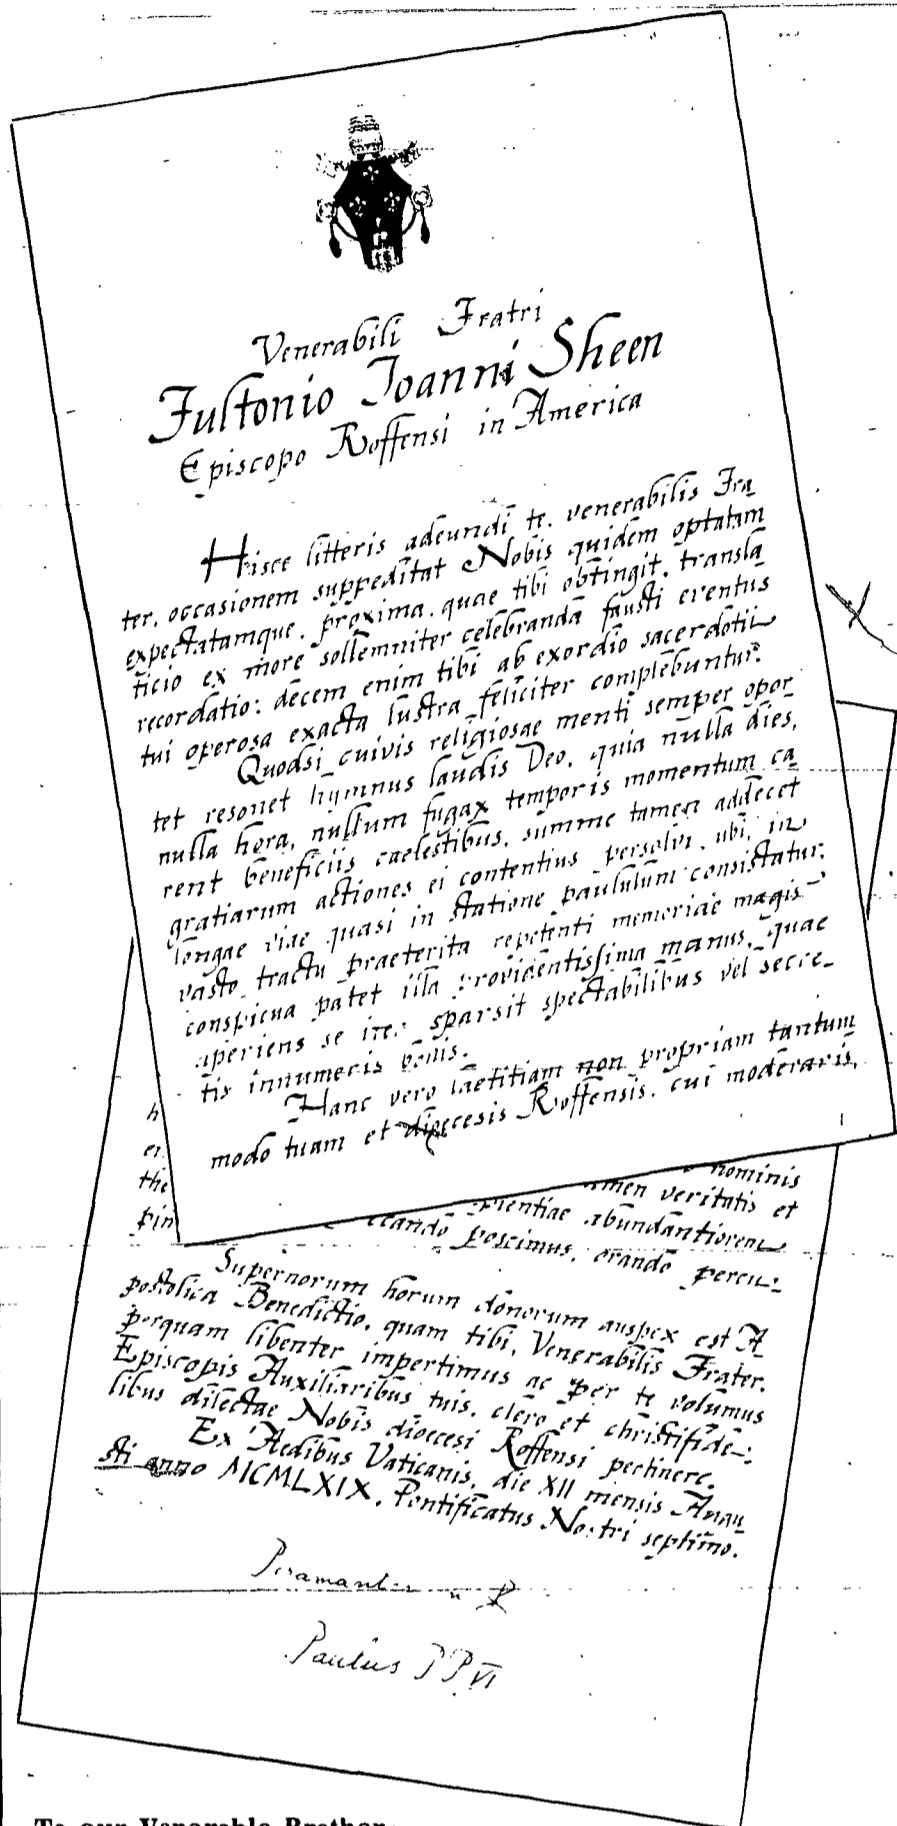 Venerabili Fratri
Fultonio Ioanni Sheen
Episcopo Roffensi in America
Hisce litteris adeundi te, venerabilis Fra
ter, occasionem suppeditat Nobis quidem optatam
expectatamque, proxima, quae tibi obtingit, transla
ticio ex more sollemniter celebranda fausti eventus
recordatio: decem enim tibi ab exordio sacerdotii
tui operosa exacta lustra feliciter complebuntur.
Quodsi cuivis religiosae menti semper opor
tet resonet hymnus laudis Deo, quia nulla dies,
nulla hora, nullum fugax temporis momentum ca
rent beneficiis caelestibus, summe tamen addecet
gratiarum actiones ei contentius persolvi, ubi, in
longae viae quasi in statione paululum consistatur,
vasto tractu praeterita repetenti memoriae magis
conspicua patet illa providentissima manus, quae
aperiens se iter sparsit spectabilibus vel secre-
tis innumeris bonis.
Hanc vero laetitiam non propriam tantum
modo tuam et dioecesis Roffensis, cui moderaris,
h
er
the
pin
nominis
veritatis et
abundantiorem
poscimus, orando percu:
Supernorum horum donorum auspex est A
postolica Benedictio, quam tibi, Venerabilis Frater,
perquam libenter impertimus ac per te volumus
Episcopis Auxiliaribus tuis, clero et christifide-:
libus dilectae Nobis dioecesi Roffensi pertinere.
Ex Aedibus Vaticanis, die XII mensis Augu
sti anno MCMLXIX, Pontificatus Nostri septimo.
Paulus PP. VI
To our Venerable Brother